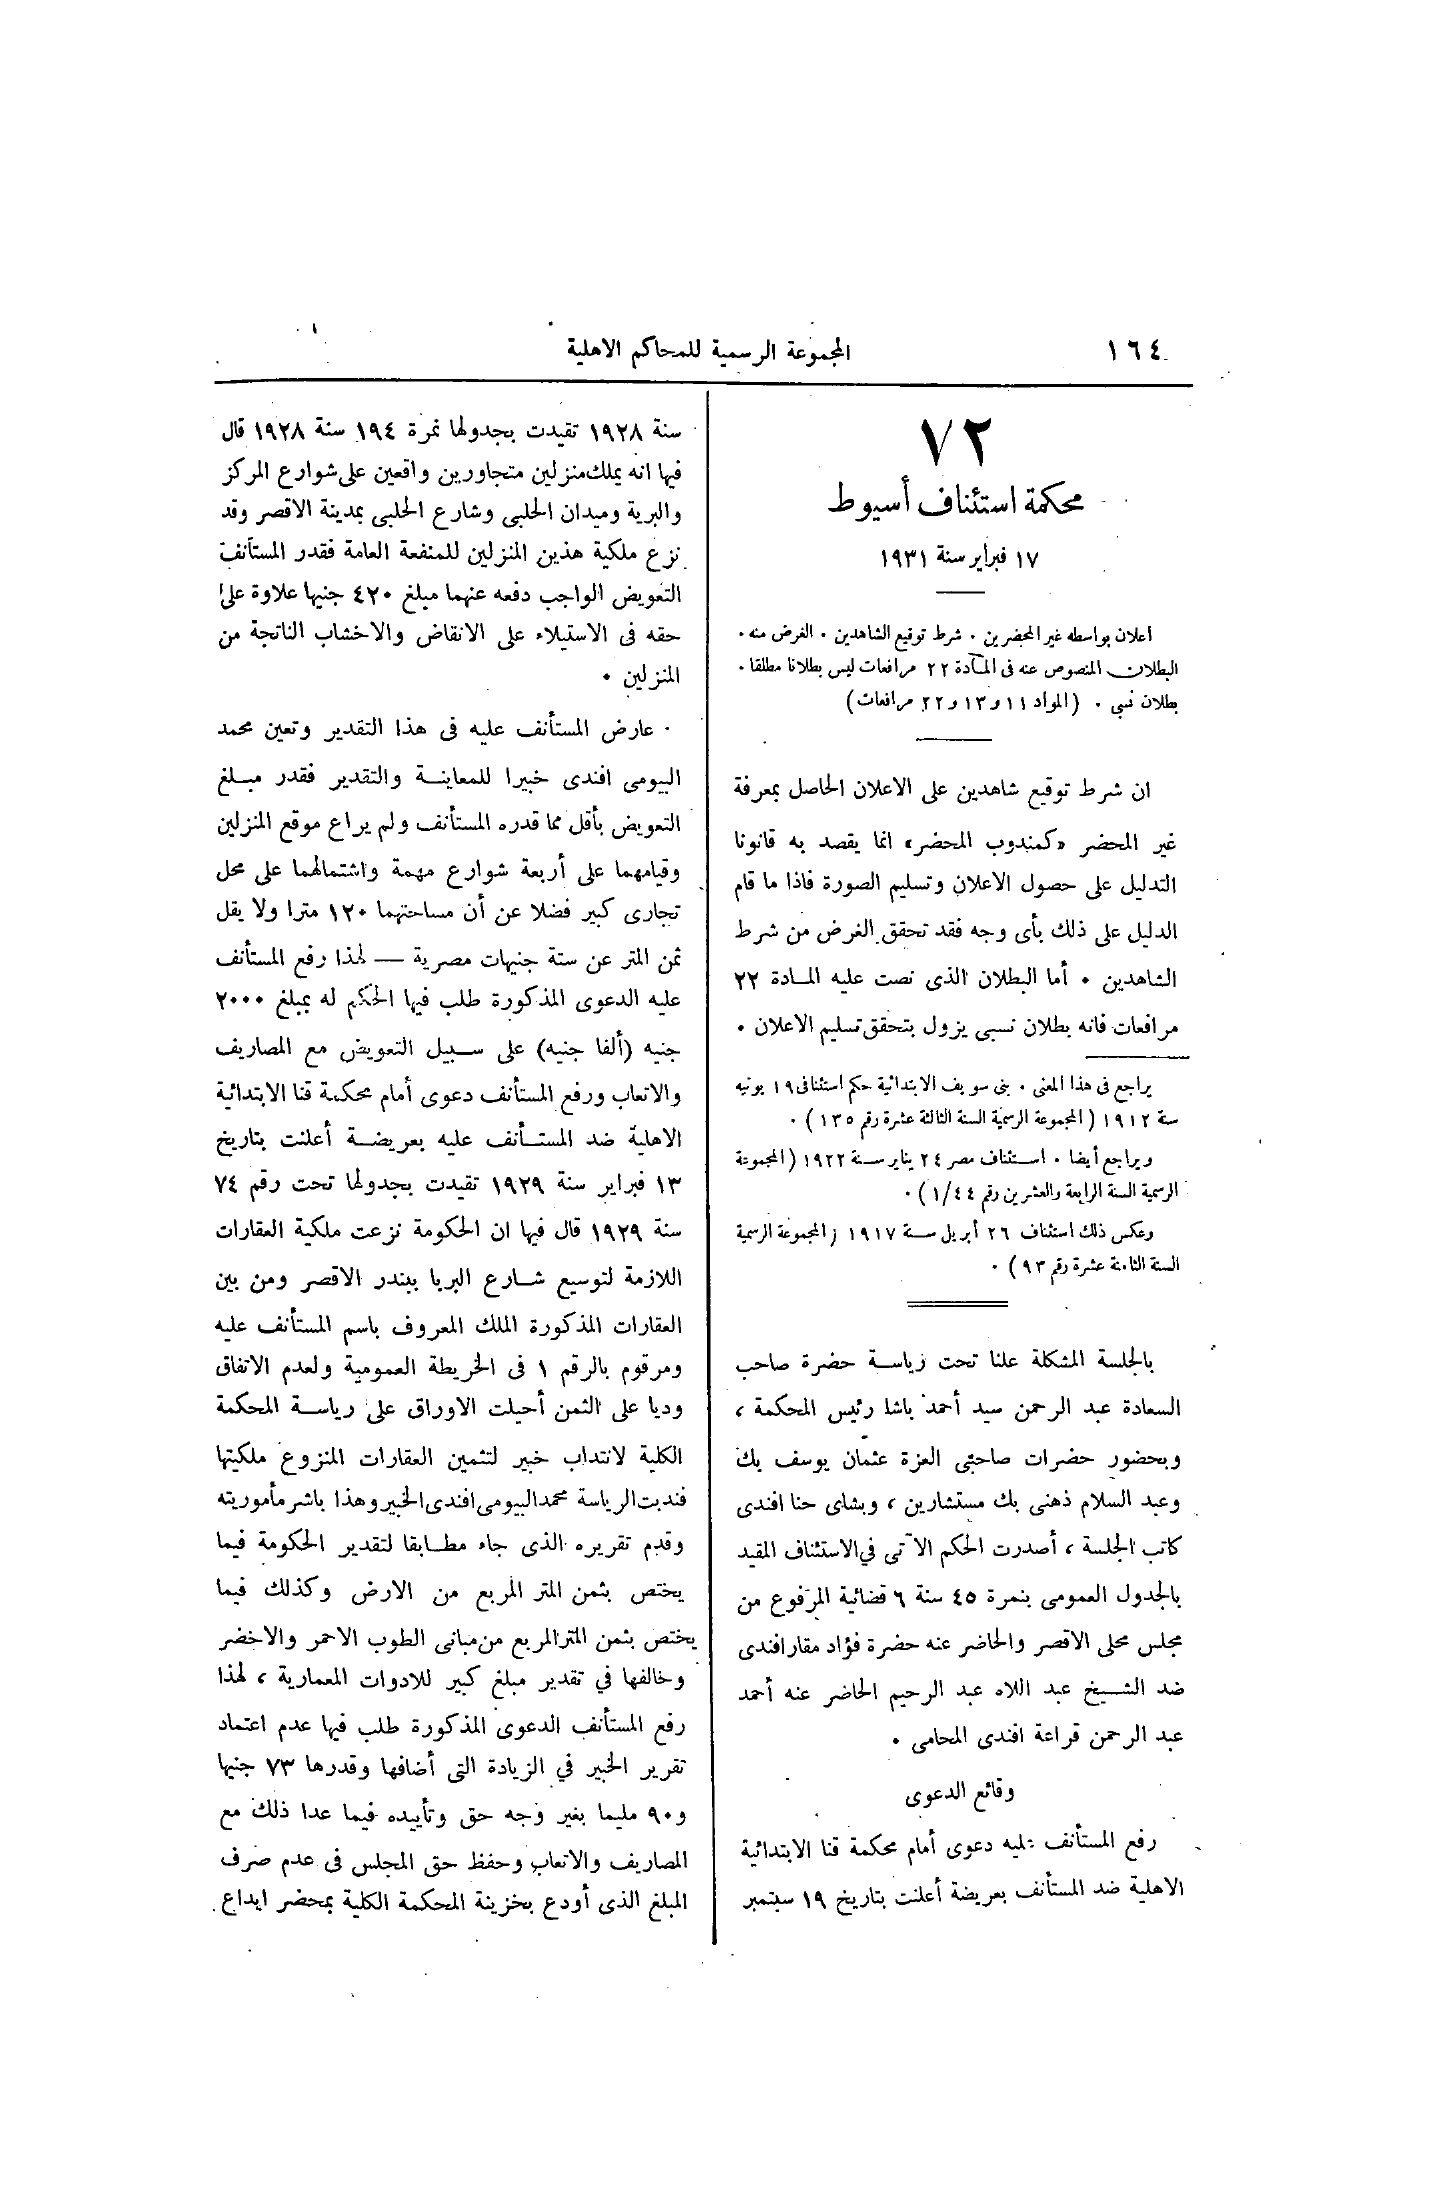 ١٦٤
المجموعة الرسمية للمحاكم الاهلية
٧٢
محكمة استئناف أسيوط
١٧ فبراير سنة ١٩٣١
اعلان بواسطه غير المحضرين ٠ شرط توقيع الشاهدين ٠ الغرض منه ٠
البطلان المنصوص عنه فى المادة ٢٢ مرافعات ليس بطلانا مطلقا ٠
بطلان نسبى ٠ (المواد ١١ و١٣ و٢٢ مرافعات)
ان شرط توقيع شاهدين على الاعلان الحاصل بمعرفة
غير المحضر «كمندوب المحضر» انما يقصد به قانونا
التدليل على حصول الاعلان وتسليم الصورة فاذا ما قام
الدليل على ذلك بأى وجه فقد تحقق الغرض من شرط
الشاهدين ٠ أما البطلان الذى نصت عليه المادة ٢٢
مرافعات فانه بطلان نسبى يزول بتحقق تسليم الاعلان ٠
يراجع فى هذا المعنى ٠ بنى سويف الابتدائية حكم استئنافى ١٩ يونيه
سنة ١٩١٢ (المجموعة الرسمية السنة الثالثة عشرة رقم ١٣٥) ٠
ويراجع أيضا ٠ استئناف مصر ٢٤ يناير سنة ١٩٢٢ (المجموعة
الرسمية السنة الرابعة والعشرين رقم ١/٤٤) ٠
وعكس ذلك استئناف ٢٦ أبريل سنة ١٩١٧ (المجموعة الرسمية
السنة الثامنة عشرة رقم ٩٣) ٠
بالجلسة المشكلة علنا تحت رياسة حضرة صاحب
السعادة عبد الرحمن سيد أحمد باشا رئيس المحكمة ،
وبحضور حضرات صاحبى العزة عثمان يوسف بك
وعبد السلام ذهنى بك مستشارين ، وبشاى حنا افندى
كاتب الجلسة ، أصدرت الحكم الآتى في الاستئناف المقيد
بالجدول العمومى بنمرة ٤٥ سنة ٦ قضائية المرفوع من
مجلس محلى الاقصر والحاضر عنه حضرة فؤاد مقار افندى
ضد الشيخ عبد اللاه عبد الرحيم الحاضر عنه أحمد
عبد الرحمن قراعة افندى المحامى ٠
وقائع الدعوى
رفع المستأنف عليه دعوى أمام محكمة قنا الابتدائية
الاهلية ضد المستأنف بعريضة أعلنت بتاريخ ١٩ سبتمبر
سنة ١٩٢٨ تقيدت بجدولها نمرة ١٩٤ سنة ١٩٢٨ قال
فيها انه يملك منزلين متجاورين واقعين على شوارع المركز
والبرية وميدان الحلبى وشارع الحلبى بمدينة الاقصر وقد
نزع ملكية هذين المنزلين للمنفعة العامة فقدر المستأنف
التعويض الواجب دفعه عنهما مبلغ ٤٢٠ جنيها علاوة على
حقه فى الاستيلاء على الانقاض والاخشاب الناتجة من
المنزلين ٠
عارض المستأنف عليه فى هذا التقدير وتعين محمد
البيومى افندى خبيرا للمعاينة والتقدير فقدر مبلغ
التعويض بأقل مما قدره المستأنف ولم يراع موقع المنزلين
وقيامهما على أربعة شوارع مهمة واشتمالهما على محل
تجارى كبير فضلا عن أن مساحتهما ١٢٠ مترا ولا يقل
ثمن المتر عن ستة جنيهات مصرية — لهذا رفع المستأنف
عليه الدعوى المذكورة طلب فيها الحكم له بمبلغ ٢٠٠٠
جنيه (ألفا جنيه) على سبيل التعويض مع المصاريف
والاتعاب ورفع المستأنف دعوى أمام محكمة قنا الابتدائية
الاهلية ضد المستأنف عليه بعريضة أعلنت بتاريخ
١٣ فبراير سنة ١٩٢٩ تقيدت بجدولها تحت رقم ٧٤
سنة ١٩٢٩ قال فيها ان الحكومة نزعت ملكية العقارات
اللازمة لتوسيع شارع البربا ببندر الاقصر ومن بين
العقارات المذكورة الملك المعروف باسم المستأنف عليه
ومرقوم بالرقم ١ فى الخريطة العمومية ولعدم الاتفاق
وديا على الثمن أحيلت الاوراق على رياسة المحكمة
الكلية لانتداب خبير لتثمين العقارات المنزوع ملكيتها
فندبت الرياسة محمد البيومى افندى الخبير وهذا باشر مأموريته
وقدم تقريره الذى جاء مطابقا لتقدير الحكومة فيما
يختص بثمن المتر المربع من الارض وكذلك فيما
يختص بثمن المتر المربع من مبانى الطوب الاحمر والاخضر
وخالفها في تقدير مبلغ كبير للادوات المعمارية ، لهذا
رفع المستأنف الدعوى المذكورة طلب فيها عدم اعتماد
تقرير الخبير في الزيادة التى أضافها وقدرها ٧٣ جنيها
و٩٠ مليما بغير وجه حق وتأييده فيما عدا ذلك مع
المصاريف والاتعاب وحفظ حق المجلس فى عدم صرف
المبلغ الذى أودع بخزينة المحكمة الكلية بمحضر ايداع